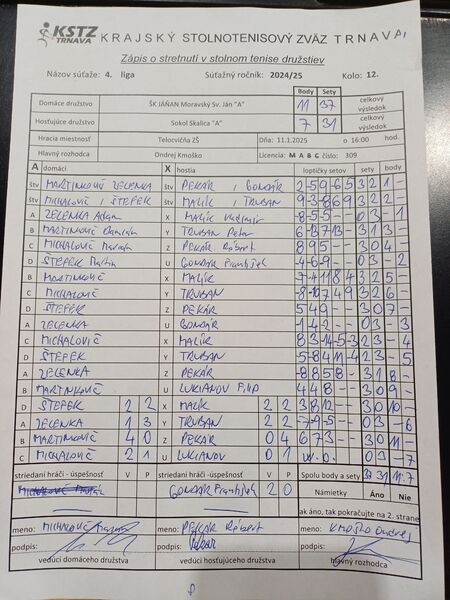 KSTZ TRNAVA KRAJSKÝ STOLNOTENISOVÝ ZVÄZ TRNAVA
Zápis o stretnutí v stolnom tenise družstiev
Názov súťaže: 4. liga Súťažný ročník: 2024/25 Kolo: 12.
Body Sety
Domáce družstvo ŠK JÁŇAN Moravský Sv. Ján "A" 11 37 celkový výsledok
Hosťujúce družstvo Sokol Skalica "A" 7 31 celkový výsledok
Hracia miestnosť Telocvičňa ZŠ Dňa: 11.1.2025 o 16:00 hod.
Hlavný rozhodca Ondrej Kmoško Licencia: M A B C číslo: 309
A domáci X hostia loptičky setov sety body
štv MARTINKOVIČ ZELENKA štv PEKÁR / GONDÁR 2 -5 9 -6 5 3 2 1 -
štv MICHALOVIČ / ŠTEFEK štv MALÍK / TRUBAN 3 2 2 -
A ZELENKA Adam X MALÍK Vladimír -8 -5 -5 - - 0 3 - 1
B MARTINKOVIČ Y TRUBAN Peter 3 1 3 -
C MICHALOVIČ Z PEKÁR Róbert 8 9 5 - - 3 0 4 -
D ŠTEFEK Martin U GONDÁR František -4 -6 -9 - - 0 3 - 2
B MARTINKOVIČ X MALÍK 3 2 5 -
C MICHALOVIČ Y TRUBAN 3 2 6 -
D ŠTEFEK Z PEKÁR 5 4 9 - - 3 0 7 -
A ZELENKA U GONDÁR 0 3 - 3
C MICHALOVIČ X MALÍK 2 3 - 4
D ŠTEFEK Y TRUBAN 2 3 - 5
A ZELENKA Z PEKÁR -8 8 5 8 - 3 1 8 -
B MARTINKOVIČ U LUKIANOV Filip 4 4 8 - - 3 0 9 -
D ŠTEFEK 2 2 X MALÍK 2 2 3 8 12 - - 3 0 10 -
A ZELENKA 1 3 Y TRUBAN 2 2 -7 -9 -5 - - 0 3 - 6
B MARTINKOVIČ 4 0 Z PEKÁR 0 4 6 7 3 - - 3 0 11 -
C MICHALOVIČ 2 1 U LUKIANOV 0 1 W.O. 0 3 - 7
striedaní hráči - úspešnosť V P striedaní hráči - úspešnosť V P Spolu body a sety 37 31 11 7
GONDÁR František 2 0 Námietky Áno Nie
ak áno, tak pokračujte na 2. strane
meno: MICHALOVIČ meno: PEKÁR Róbert meno: KMOŠKO Ondrej
podpis: podpis: podpis:
vedúci domáceho družstva vedúci hosťujúceho družstva hlavný rozhodca